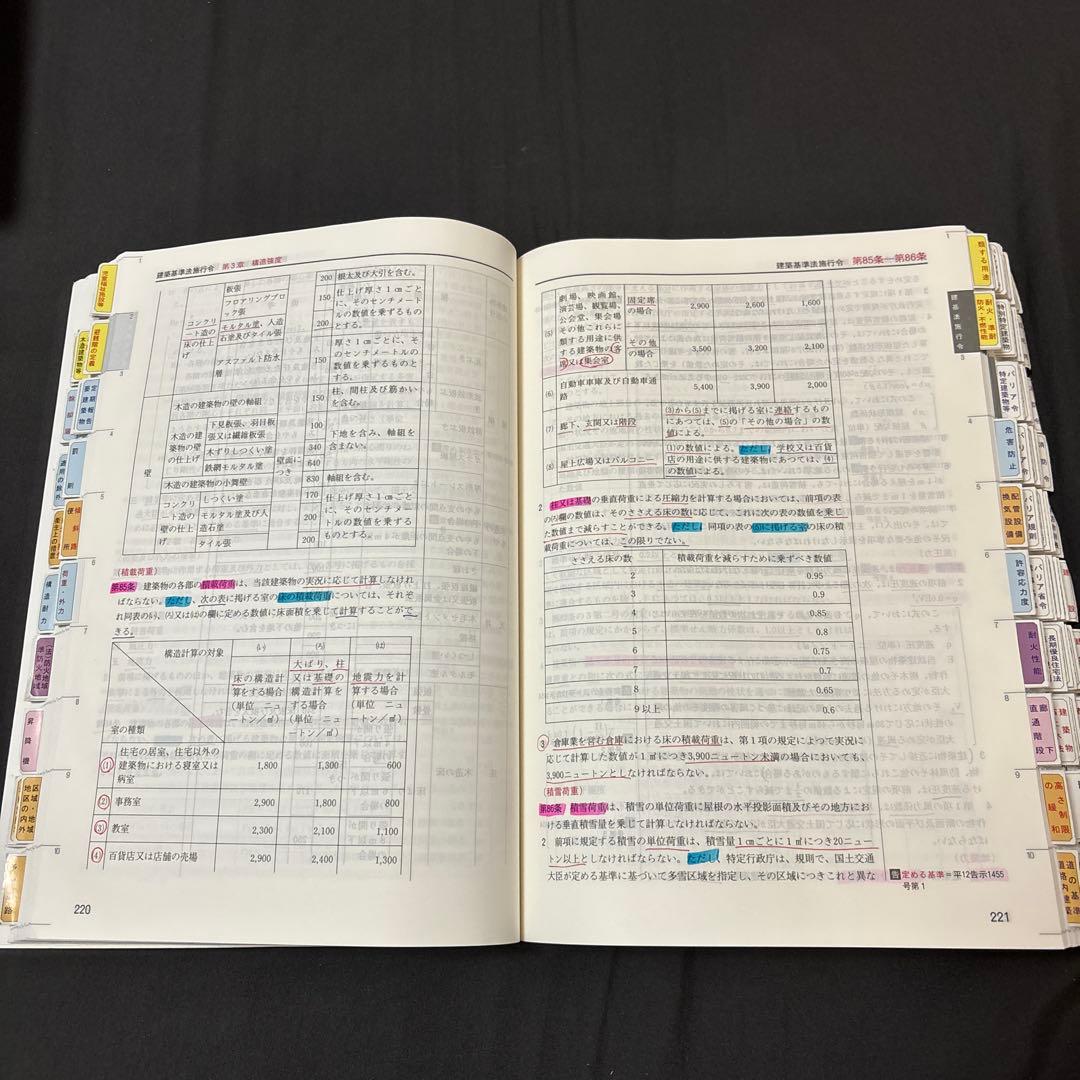 建築基準法施行令 第3章 構造強度
コンクリート造の床の仕上げ
板張 200 根太及び大引を含む。
フロアリングブロック張 150 仕上げ厚さ1cmごとに、そのセンチメートルの数値を乗ずるものとする。
モルタル塗、人造石塗及びタイル張 200
アスファルト防水層 150 厚さ1cmごとに、そのセンチメートルの数値を乗ずるものとする。
壁
木造の建築物の壁の軸組 150 柱、間柱及び筋かいを含む。
木造の建築物の壁の仕上げ
下見板張、羽目板張又は繊維板張 100 下地を含み、軸組を含まない。
木ずりしつくい塗 340
鉄網モルタル塗 640
壁面につき
木造の建築物の小舞壁 830 軸組を含む。
コンクリート造の壁の仕上げ
しつくい塗 170 仕上げ厚さ1cmごとに、そのセンチメートルの数値を乗ずるものとする。
モルタル塗及び人造石塗 200
タイル張 200
(積載荷重)
第85条 建築物の各部の積載荷重は、当該建築物の実況に応じて計算しなけれ
ばならない。ただし、次の表に掲げる室の床の積載荷重については、それぞ
れ同表の(い)、(ろ)又は(は)の欄に定める数値に床面積を乗じて計算することがで
きる。
構造計算の対象
室の種類
(い) (ろ) (は)
床の構造計算をする場合(単位 ニュートン/㎡)
大ばり、柱又は基礎の構造計算をする場合(単位 ニュートン/㎡)
地震力を計算する場合(単位 ニュートン/㎡)
(1) 住宅の居室、住宅以外の建築物における寝室又は病室 1,800 1,300 600
(2) 事務室 2,900 1,800 800
(3) 教室 2,300 2,100 1,100
(4) 百貨店又は店舗の売場 2,900 2,400 1,300
220
建築基準法施行令 第85条―第86条
(5) 劇場、映画館、演芸場、観覧場、公会堂、集会場その他これらに類する用途に供する建築物の客席又は集会室
固定席の場合 2,900 2,600 1,600
その他の場合 3,500 3,200 2,100
(6) 自動車車庫及び自動車通路 5,400 3,900 2,000
(7) 廊下、玄関又は階段 (3)から(5)までに掲げる室に連絡するものにあつては、(5)の「その他の場合」の数値による。
(8) 屋上広場又はバルコニー (1)の数値による。ただし、学校又は百貨店の用途に供する建築物にあつては、(4)の数値による。
2 柱又は基礎の垂直荷重による圧縮力を計算する場合においては、前項の表
の(ろ)欄の数値は、そのささえる床の数に応じて、これに次の表の数値を乗じ
た数値まで減らすことができる。ただし、同項の表の(5)に掲げる室の床の積
載荷重については、この限りでない。
ささえる床の数 積載荷重を減らすために乗ずべき数値
2 0.95
3 0.9
4 0.85
5 0.8
6 0.75
7 0.7
8 0.65
9以上 0.6
3 倉庫業を営む倉庫における床の積載荷重は、第1項の規定によつて実況に
応じて計算した数値が1㎡につき3,900ニュートン未満の場合においても、
3,900ニュートンとしなければならない。
(積雪荷重)
第86条 積雪荷重は、積雪の単位荷重に屋根の水平投影面積及びその地方にお
ける垂直積雪量を乗じて計算しなければならない。
2 前項に規定する積雪の単位荷重は、積雪量1cmごとに1㎡につき20ニュー
トン以上としなければならない。ただし、特定行政庁は、規則で、国土交通
大臣が定める基準に基づいて多雪区域を指定し、その区域につきこれと異な
告 定める基準=平12告示1455
号第1
221
児童福祉施設等
避難階の定義
木造建築物等
定期報告
要建築物
罰則
適用の除外
傾斜路
便所
荷重・外力
構造耐力
防火地域
準防火地域
昇降機
区域・地域
地区の内外
路
類する用途
建基法施行令
耐火・準耐
防火・不燃性能
特別特定建築物
バリア令
特定建築物等
危害防止
配管設備
換気設備
バリア規則
許容応力度
バリア省令
耐火性能
長期優良住宅法
廊下
直通階段
高さ制限
の緩和
道の基準
道路内建築